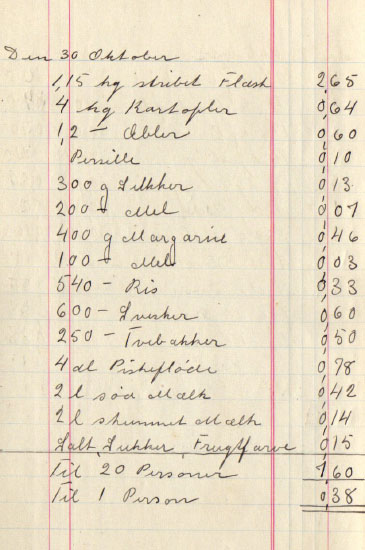 Den 30 Oktober
1,15 kg stribet Flæsk 2,65
4 kg Kartofler 0,64
1,2 - Æbler 0,60
Persille 0,10
300 g Sukker 0,13
200 - Mel 0,07
400 g Margarine 0,46
100 - Mel 0,03
540 - Ris 0,33
600 - Svesker 0,60
250 - Tvebakker 0,50
4 dl Piskefløde 0,78
2 l sød Mælk 0,42
2 l skummet Mælk 0,14
Salt, Sukker, Frugtfarve 0,15
Til 20 Personer 7,60
Til 1 Person 0,38